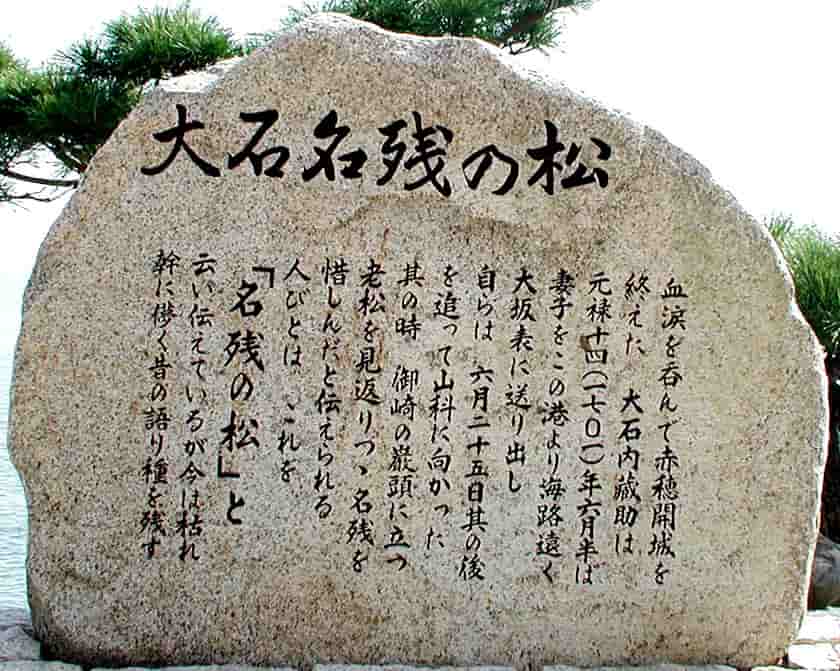 大石名残の松
血涙を呑んで赤穂開城を
終えた　大石内蔵助は
元禄十四(一七〇一)年六月半ば
妻子をこの港より海路遠く
大坂表に送り出し
自らは　六月二十五日其の後
を追って山科に向かった
其の時　御崎の巌頭に立つ
老松を見返りつゝ名残を
惜しんだと伝えられる
人びとは　これを
「名残の松」と
云い伝えているが今は枯れ
幹に儚く昔の語り種を残す